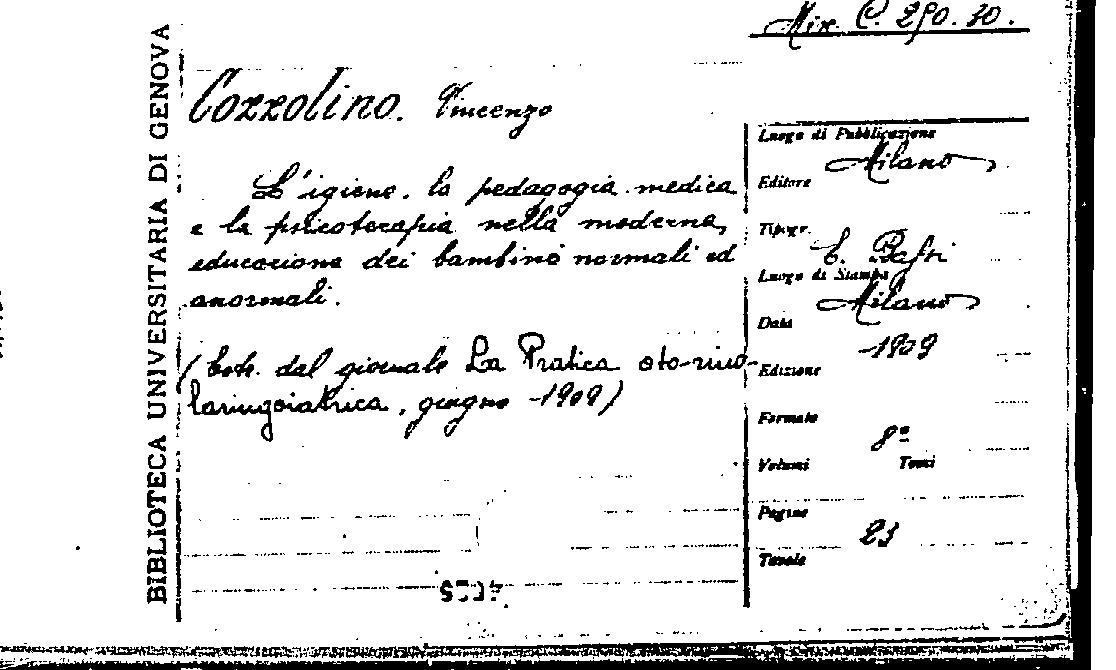 Misc. C. 290. 30.
BIBLIOTECA UNIVERSITARIA DI GENOVA
Cozzolino. Vincenzo
L'igiene. la pedagogia medica
e la psicoterapia nella moderna,
educazione dei bambini normali ed
anormali.
(Estr. dal giornale La Pratica oto-rino-
laringoiatrica, giugno 1909)
Luogo di Pubblicazione
Milano
Editore
Tipogr.
Luogo di Stampa
Milano
Data
1909
Edizione
Formato
8º
Volumi Tomi
Pagine
Tavole